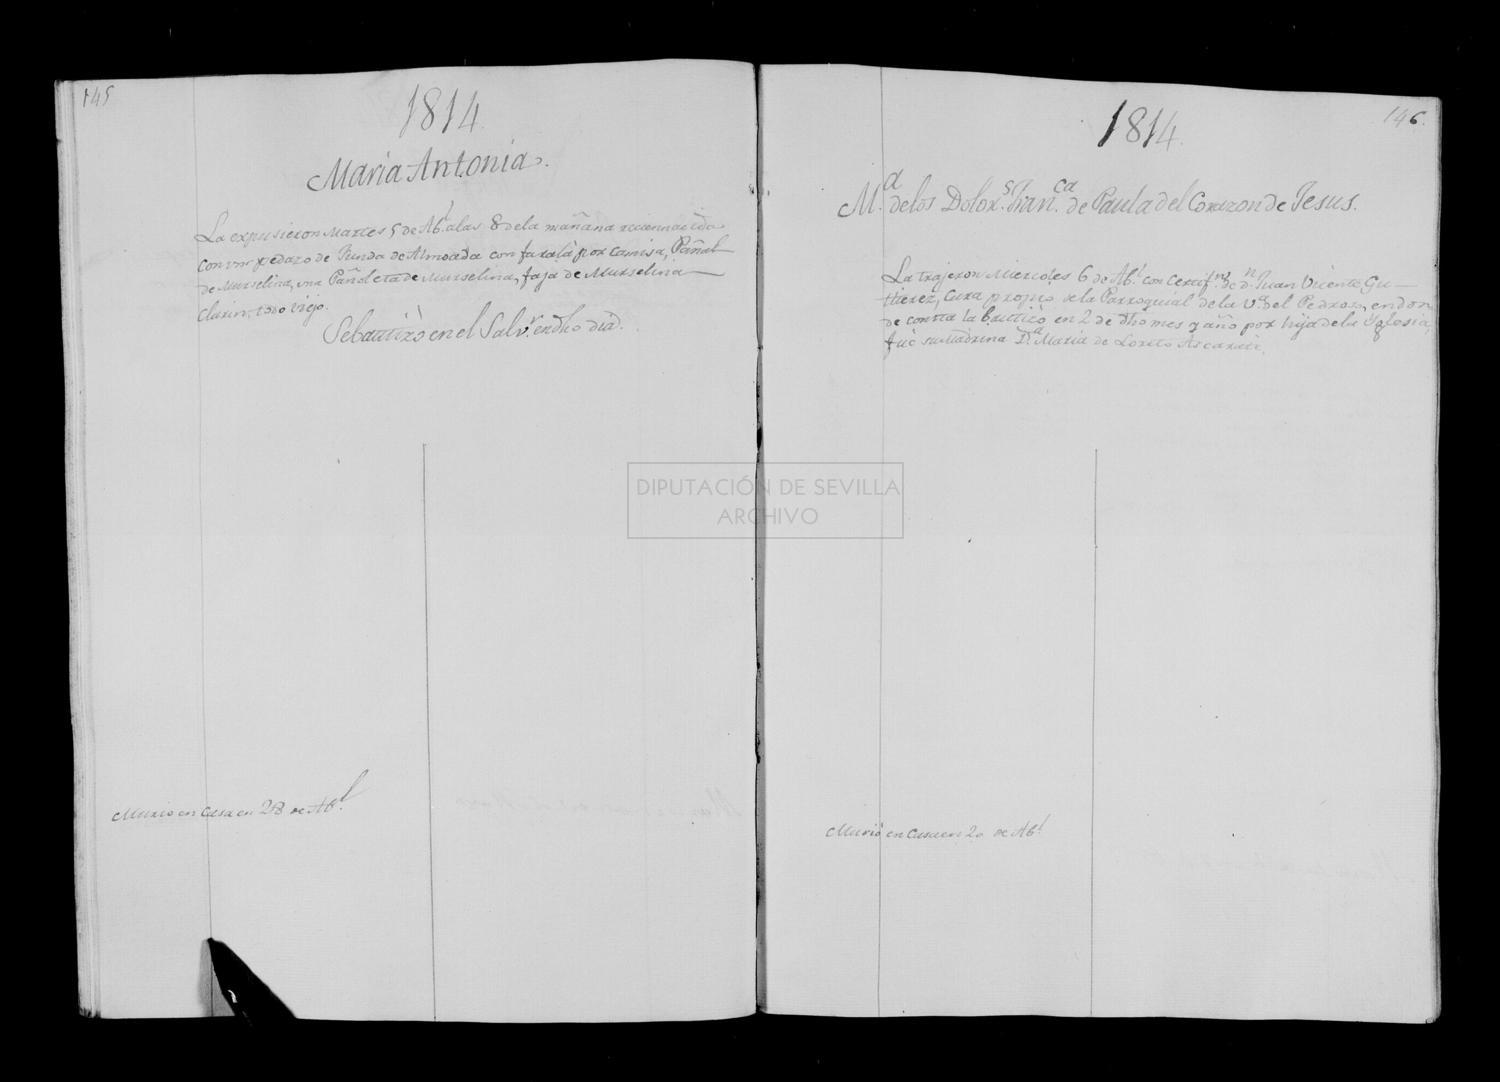 145
1814
Maria Antonia.
La expusieron Martes 5 de Abl. a las 8 de la mañana recien nacida
con un pedazo de Funda de Almoada con faralà por camisa, Pañal
de Murselina, una Pañoleta de Murselina, faja de Murselina
clarin, todo viejo.
Se bautizò en el Salvr. en dho dia.
Murio en Casa en 28 de Abl.
146.
1814.
Ma. de los Dolors. Franca. de Paula del Corazon de Jesus.
La trajeron Miercoles 6 de Abl. con Certifn. de dn. Juan Vicente Gu-
tierez, Cura propio de la Parroquial de la Va. del Pedroso, en don
de consta la bautizò en 2 de dho mes y año por hija de la Yglesia,
fuè su Madrina Da. Maria de Loreto Ascarate.
Muriò en Casa en 20 de Abl.
DIPUTACIÓN DE SEVILLA
ARCHIVO